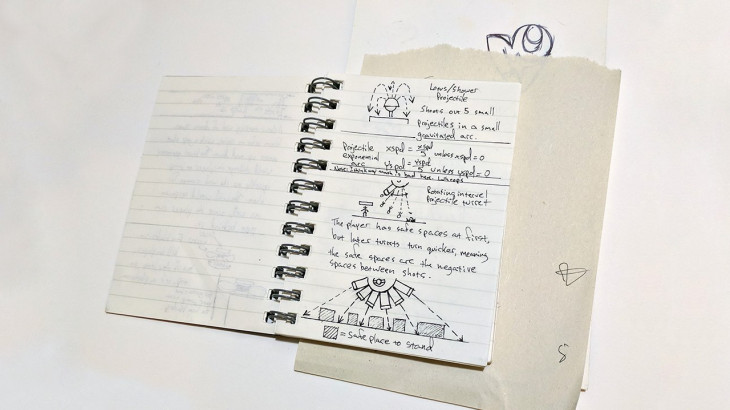 Shower
Projectile
Shoots out 5 small
projectiles in a small
gravitated arc.
Projectile xspd = xspd/5 unless xspd = 0
exponential
arc yspd = yspd/5 unless yspd = 0
Note: I think my math is bad here.
Rotating interval
Projectile turret
The player has safe spaces at first,
but later turrets turn quicker, meaning
the safe spaces are the negative
spaces between shots.
= safe place to stand